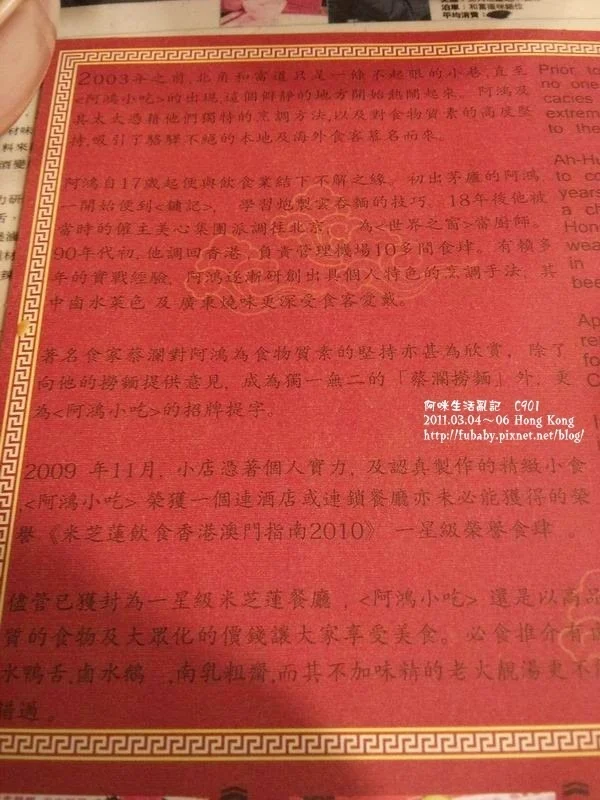 泊車:和富道咪錶位
平均消費:
2003年之前,北角和富道只是一條不起眼的小巷,直至
<阿鴻小吃>的出現,這個僻靜的地方開始熱鬧起來。阿鴻及
其太太憑藉他們獨特的烹調方法,以及對食物質素的高度堅
持,吸引了絡驛不絕的本地及海外食客慕名而來。
阿鴻自17歲起便與飲食業結下不解之緣。初出茅廬的阿鴻
一開始便到<鏞記>, 學習炮製雲吞麵的技巧。18年後他被
當時的僱主美心集團派調往北京, 為<世界之窗>當廚師。
90年代初,他調回香港,負責管理機場10多間食肆。有賴多
年的實戰經驗, 阿鴻逐漸研創出具個人特色的烹調手法, 其
中鹵水菜色 及 廣東燒味更深受食客愛戴。
著名食家蔡瀾對阿鴻為食物質素的堅持亦甚為欣賞, 除了
向他的撈麵提供意見, 成為獨一無二的「蔡瀾撈麵」外, 更
為<阿鴻小吃>的招牌提字。
2009 年11月, 小店憑著個人實力, 及認真製作的精緻小食
,<阿鴻小吃> 榮獲一個連酒店或連鎖餐廳亦未必能獲得的榮
譽《米芝蓮飲食香港澳門指南2010》 一星級榮譽食肆 。
儘管已獲封為一星級米芝蓮餐廳, <阿鴻小吃> 還是以高品
質的食物及大眾化的價錢讓大家享受美食。必食推介有
水鴨舌,鹵水鵝 ,南乳粗齋,而其不加味精的老火靚湯更不
錯過。
Prior to
no one
cacies
extrem
to the
Ah-Hu
to co
years
a ch
Hong
wea
in
bee
Ap
ren
fo
C
阿咪生活亂記 C901
2011.03.04~06 Hong Kong
http://fubaby.pixnet.net/blog/